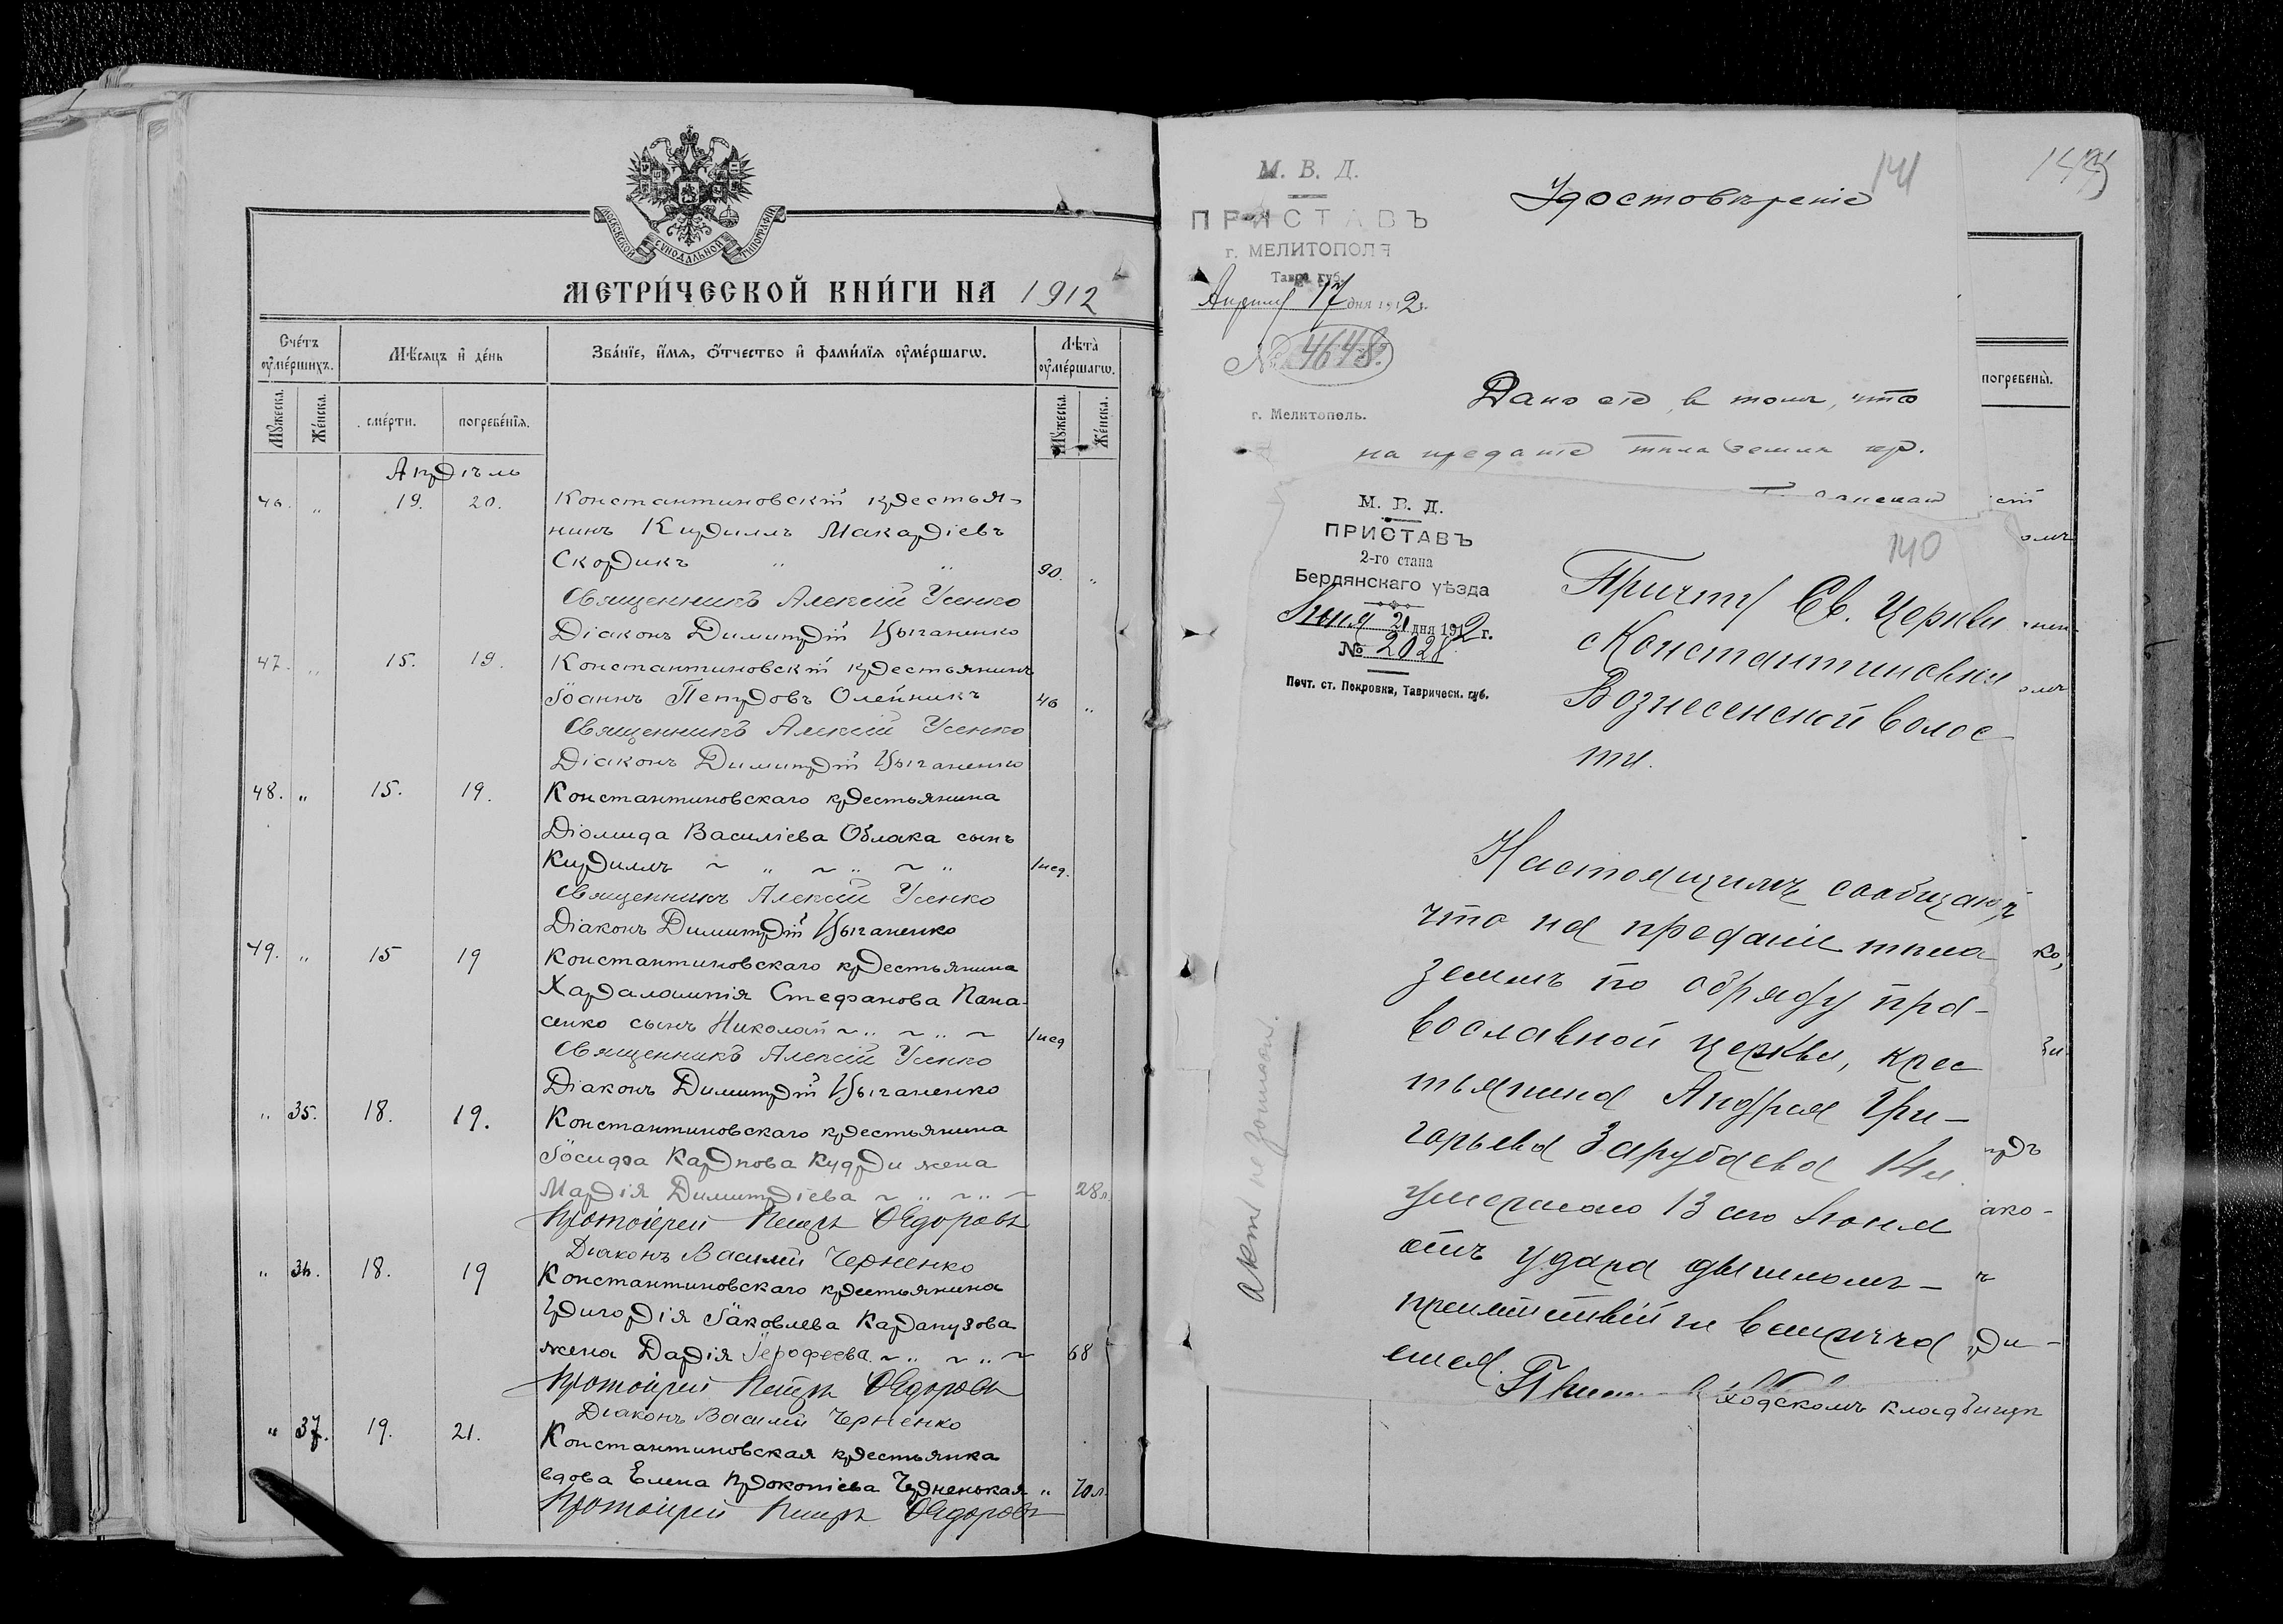 МОСКОВСКОЙ СѴНОДАЛЬНОЙ ТИПОГРАФІИ
МЕТРИ́ЧЕСКОЙ КНИ́ГИ НА 1912
Счетъ оумершихъ.
Мѣсяцъ и день
Званіе, имя, отчество и фамилія оумершагω.
Лѣта оумершагω.
Мужеска.
Женска.
смерти.
погребенія.
Мужеска.
Женска.
Апрѣль
46. " 19. 20. Константиновскій крестья-
нинъ Кириллъ Макаріевъ
Скорикъ " " 90. "
Священникъ Алексій Усенко
Діаконъ Димитрій Цыганенко
47. " 15. 19. Константиновскій крестьянинъ
Іоаннъ Петровъ Олейникъ 46 "
Священникъ Алексій Усенко
Діаконъ Димитрій Цыганенко
48. " 15. 19. Константиновскаго крестьянина
Діомида Василіева Облака сынъ
Кириллъ ~ " ~ " ~ " 1 нед.
Священникъ Алексій Усенко
Діаконъ Димитрій Цыганенко
49. " 15 19 Константиновскаго крестьянина
Харалампія Стефанова Пана-
сенко сынъ Николай ~ " ~ " ~ 1 нед
Священникъ Алексій Усенко
Діаконъ Димитрій Цыганенко
" 35. 18. 19. Константиновскаго крестьянина
Іосифа Карпова Кудри жена
Марія Димитріева ~ " ~ " ~ 28 л.
Протоіерей Петръ Ѳедоровъ
Діаконъ Василій Черненко
" 36. 18. 19 Константиновскаго крестьянина
Григорія Іаковлева Карапузова
жена Дарія Іерофеева ~ " ~ " ~ 68
Протоіерей Петръ Ѳедоровъ
Діаконъ Василій Черненко
" 37. 19. 21. Константиновская крестьянка
вдова Елена Прокопіева Черненькая " 70 л.
Протоіерей Петръ Ѳедоровъ
141
М. В. Д.
ПРИСТАВЪ
г. МЕЛИТОПОЛЯ
Тавр. губ.
Апрѣля 17 дня 1912 г.
№ 4648.
г. Мелитополь.
Удостовѣреніе
Дано сіе в томъ, что
на преданіе тѣла землѣ кр.
погребены.
140
М. В. Д.
ПРИСТАВЪ
2-го стана
Бердянскаго уѣзда
Іюня 21 дня 1912 г.
№ 2028
Почт. ст. Покровка, Таврическ. губ.
Причту Св. Церкви
с Константиновки
Вознесенской волос-
ти.
Настоящимъ сообщаю,
что на преданіе тѣла
землѣ по обряду пра-
вославной церкви, крес
тьянина Андрея Гри-
горьева Зарубаева 14 л.
умершаго 13 сего Іюня
отъ удара дышломъ -
препятствій не встрѣча
ется.
ходскомъ кладбищѣ